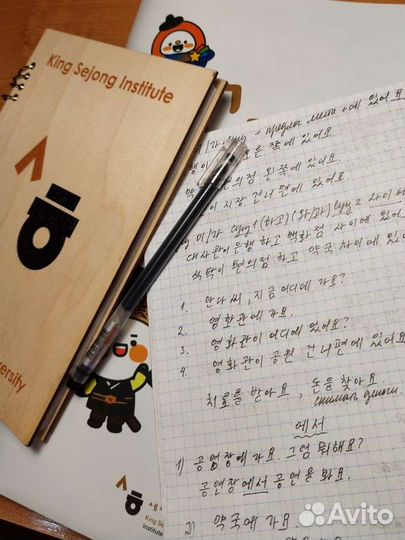 King Sejong Institute
предлог места + 에 있어요
쪽에 있어요.
왼쪽에 있어요.
시장 건너편에 있어요
이/가 сущ1 (하고)(와/과) сущ2 사이에
대사관이 은행 하고 백화점 사이에 있어
식탁이 편의점 하고 약국 사이에 있어
1. 안나 씨, 지금 어디에 가요?
2. 영화관에 가요.
3. 영화관이 어디에 있어요?
4. 영화관이 공원 건너편에 있어요
치료를 받아요, 돈을 찾아요
снимать деньги
에서
1) 공연장에 가요. 그럼 뭐해요?
공연장에서 공연을 봐요.
2) 약국에 가요
King Se
Institute
Avito